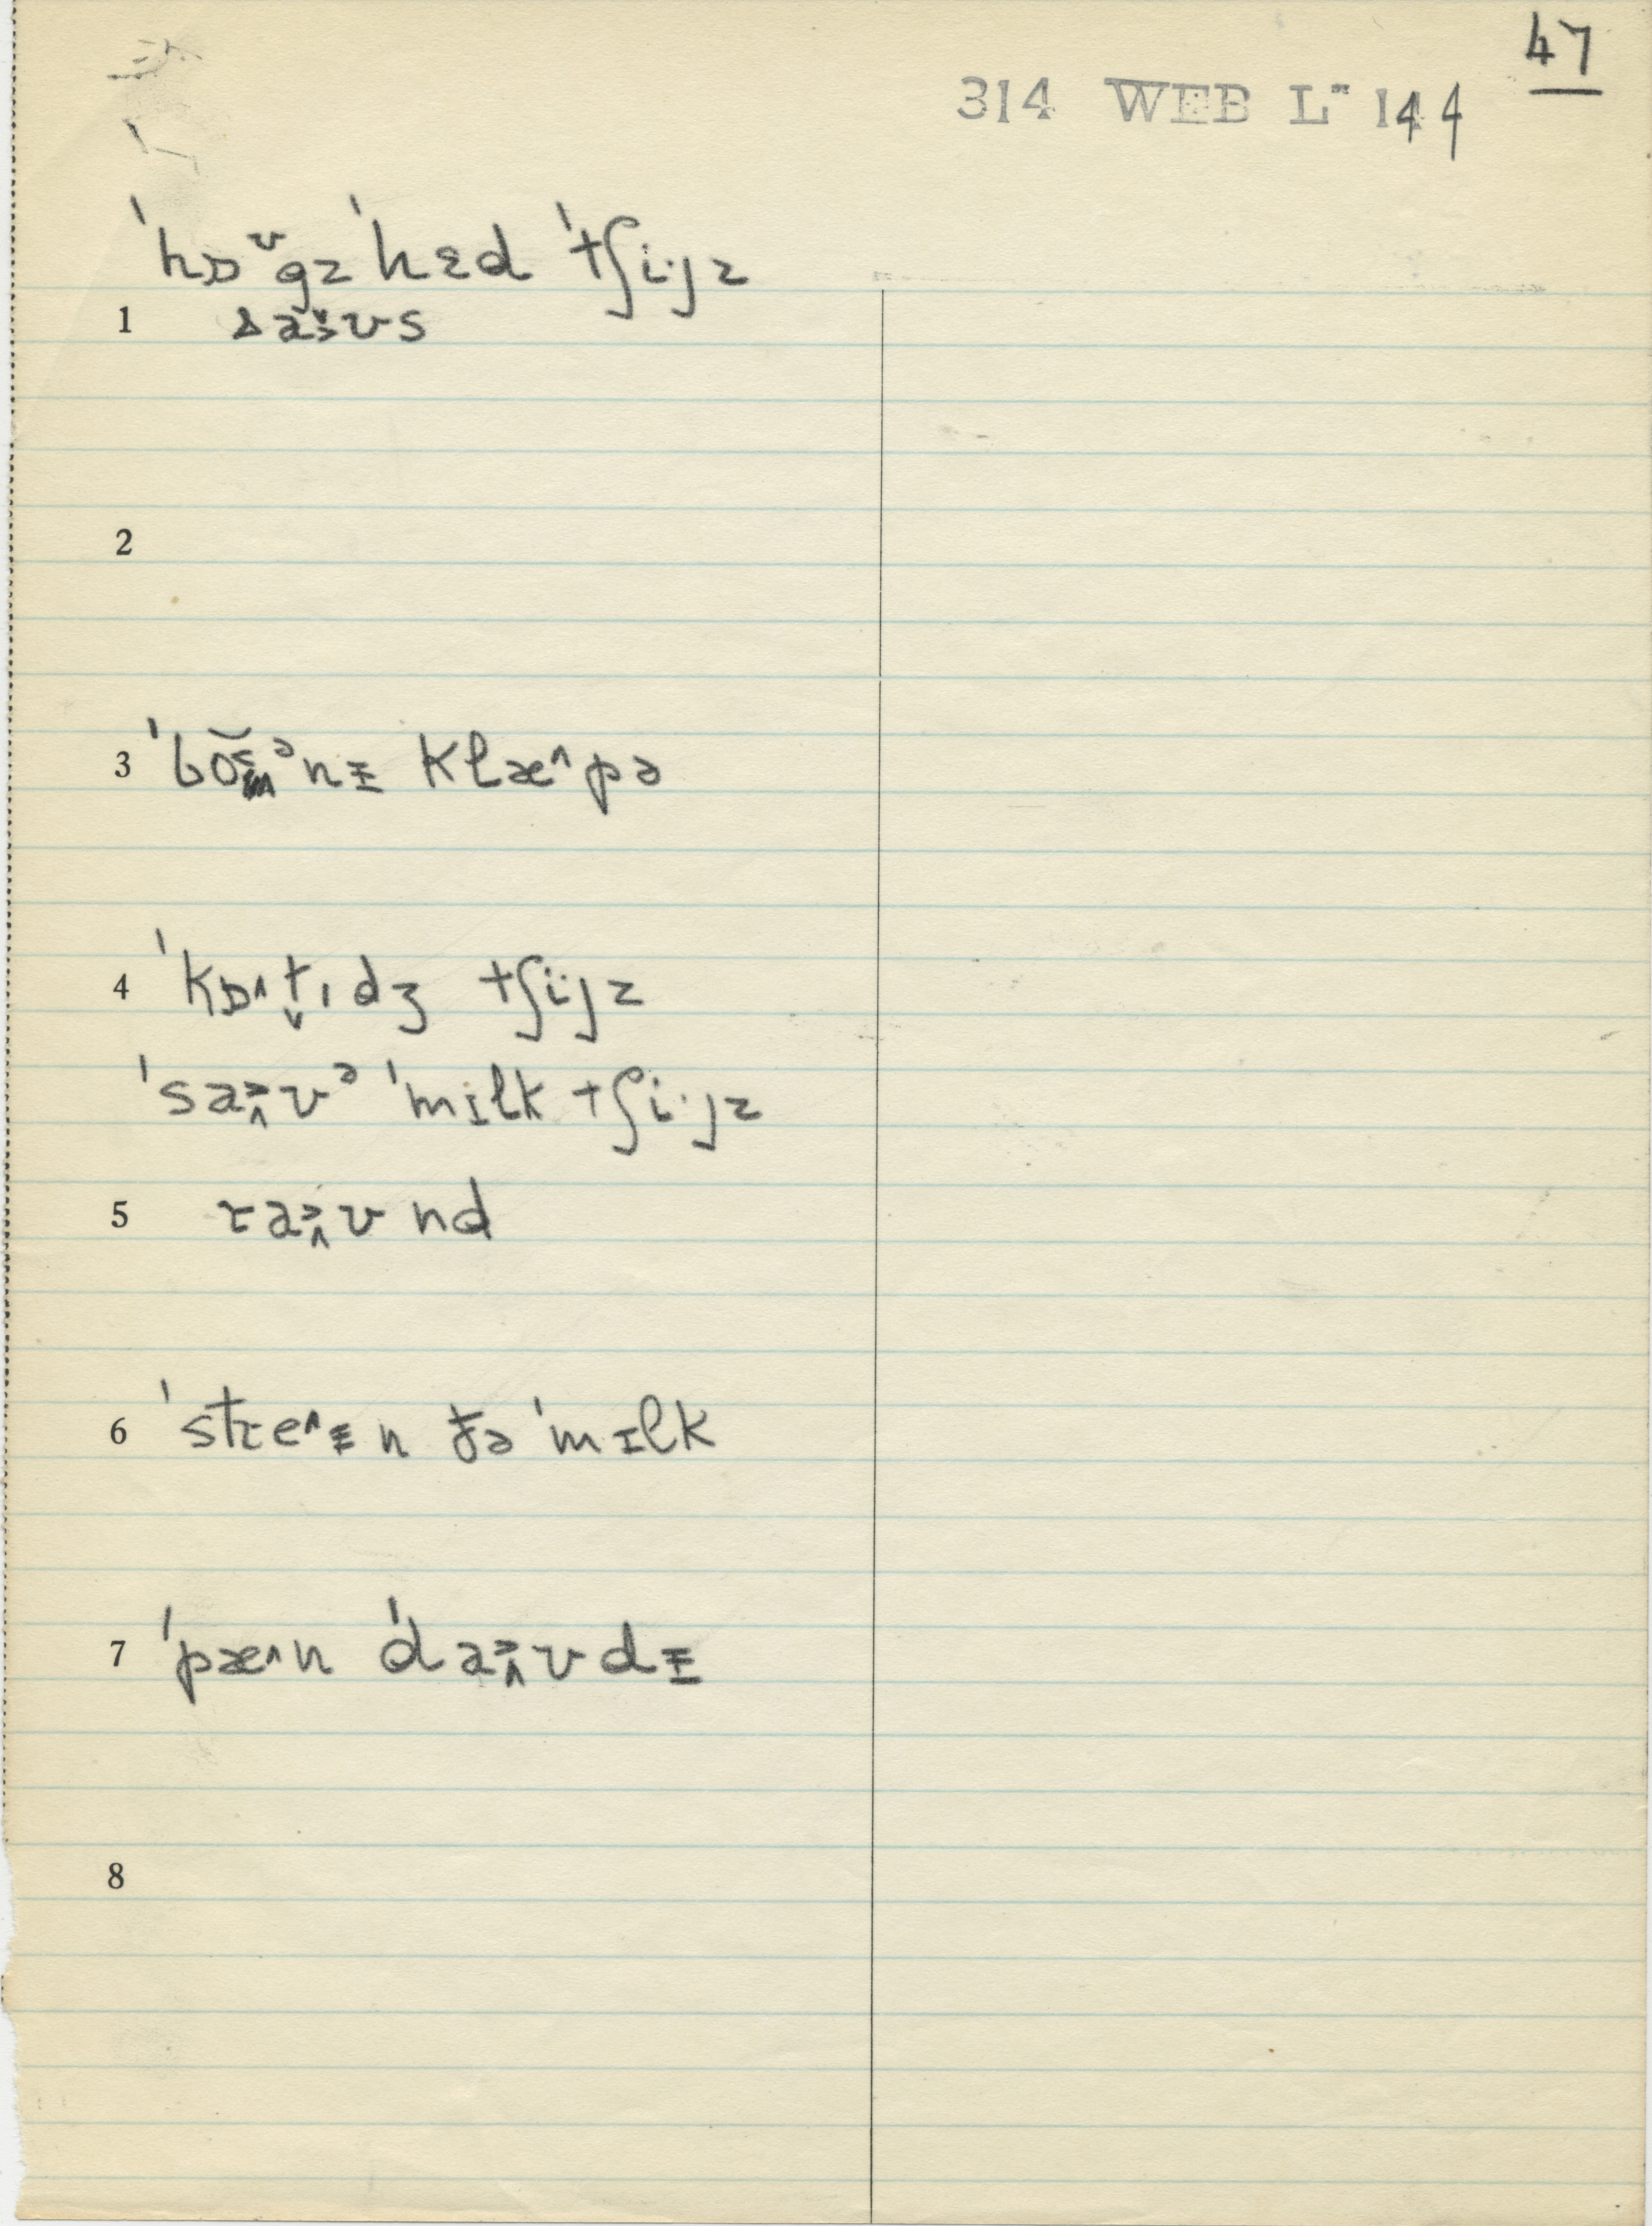 47
314 WEB L- 144
ˈhɒᶷgz ˈhɛd ˈtʃiˑjz
1 saʊs
2
3 ˈboᵊnɪ klæ^pə
4 ˈkɒ^t̬ɪdʒ tʃiˑjz
ˈsaʊᵊ ˈmɪlk tʃiˑjz
5 raʊnd
6 ˈstre^ɪn ðə ˈmɪlk
7 ˈpæ^n ˈdaʊdɪ
8